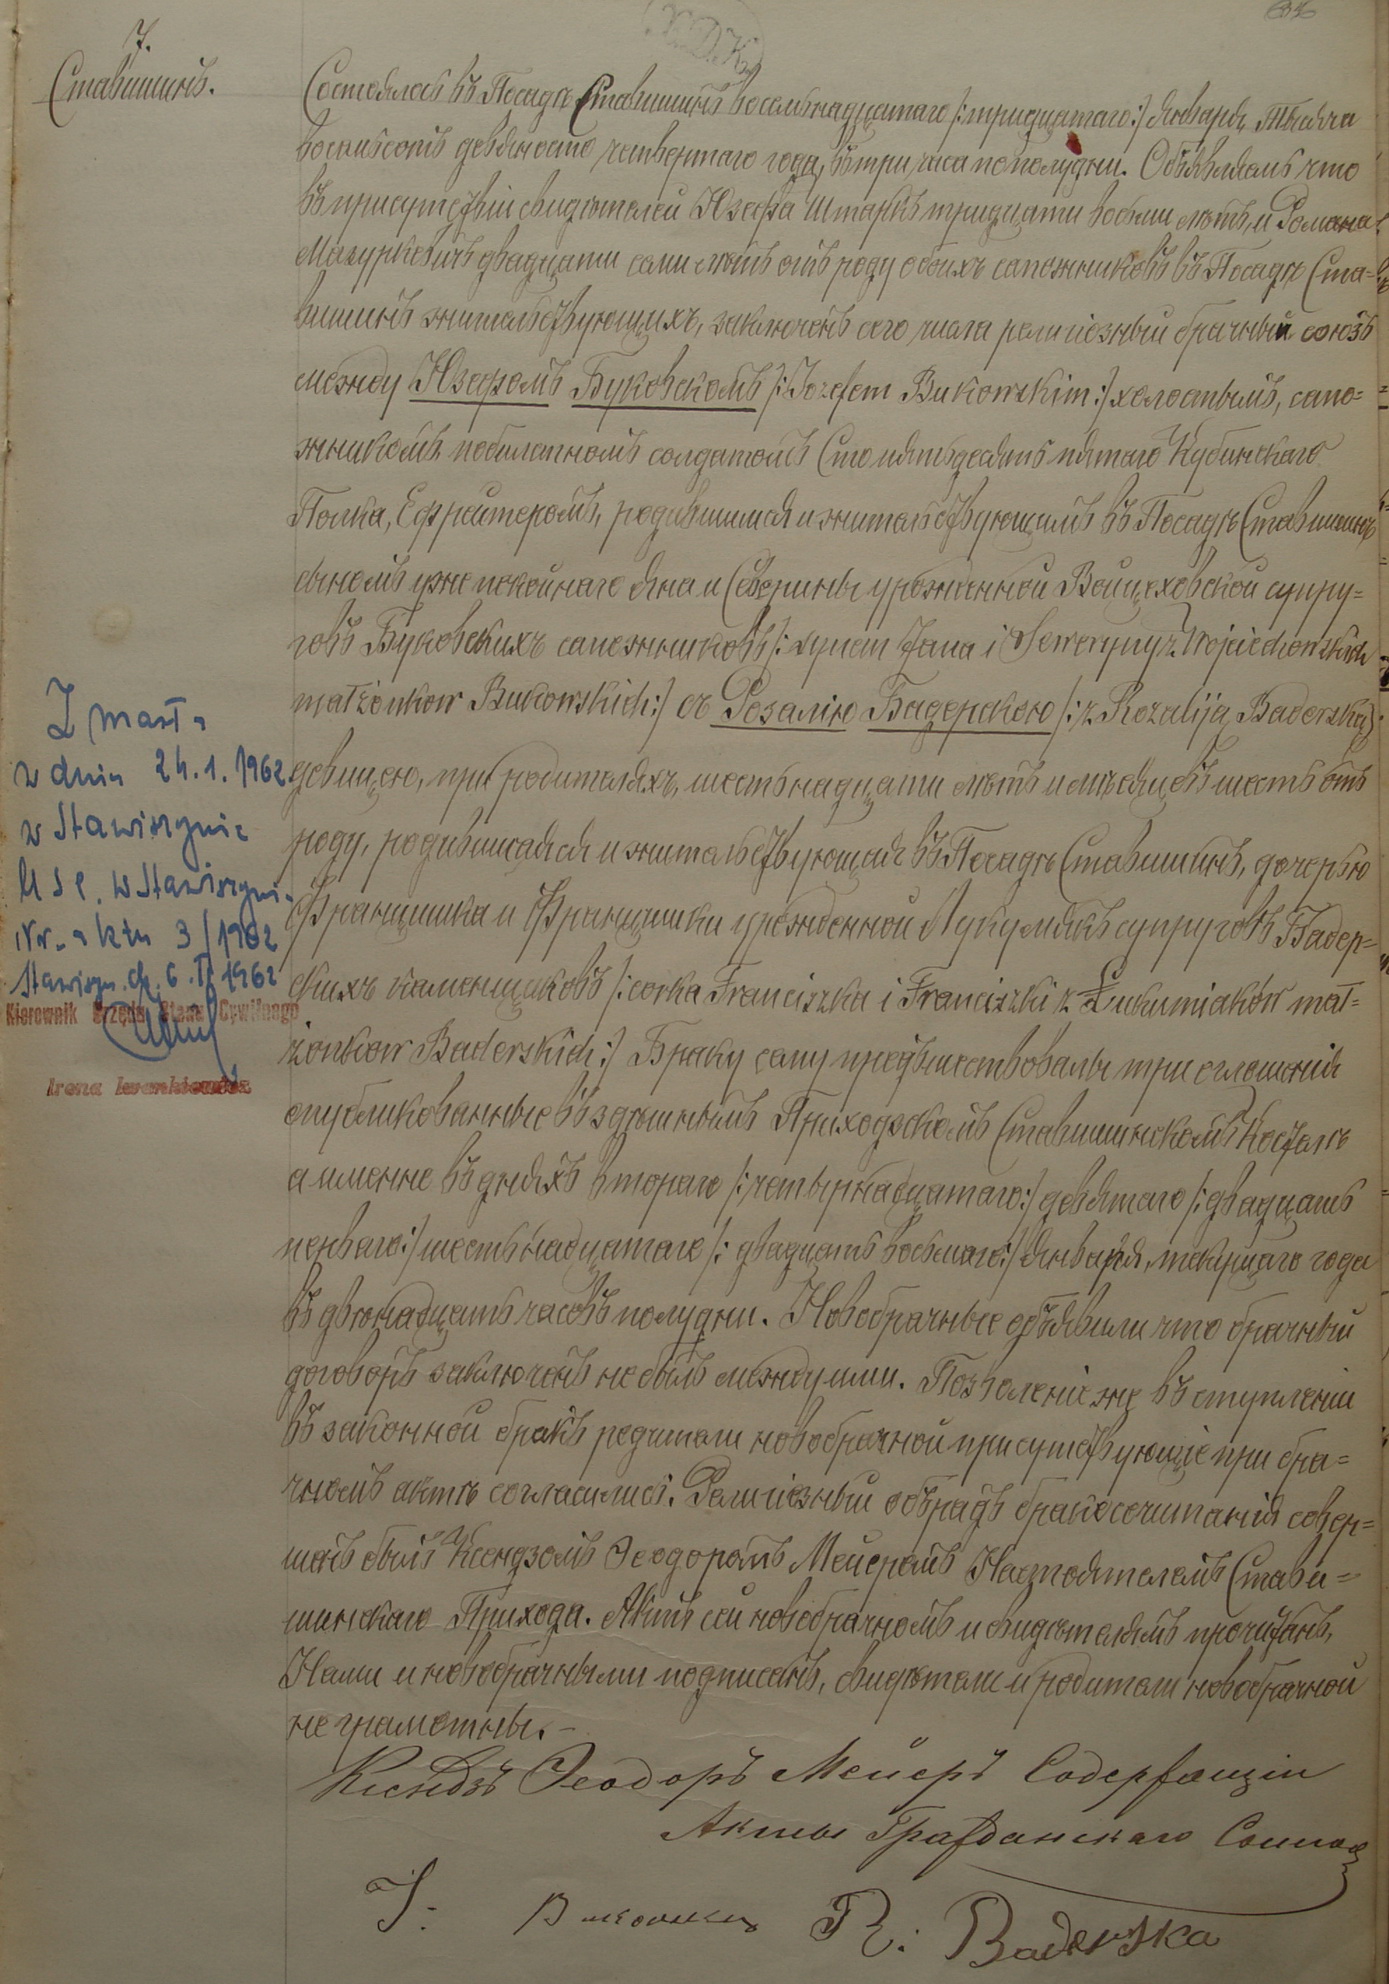 7.
Ставишинъ.
Состоялось въ Посадѣ Ставишинѣ восемьнадцатаго /:тридцатаго:/ Января, тысяча
восемьсотъ девяносто четвертаго года, въ три часа по полудни. Объявляемъ что
въ присутствіи свидѣтелей Юзефа Штаркъ тридцати восьми лѣтъ, и Романа
Мазуркевичъ двадцати семи лѣтъ отъ роду обоихъ сапожниковъ въ Посадѣ Ста=
вишинѣ жительствующихъ, заключенъ сего числа религіозный брачный союзъ
между Юзефомъ Буковскомъ /:Józefem Bukowskim:/ холостымъ, сапо=
жникомъ побилетномъ солдатомъ Сто пятьдесять пятаго Кубинскаго
Полка, Ефрейтеромъ, родившимся и жительствующимъ въ Посадѣ Ставишинѣ
сыномъ уже покойнаго Яна и Северины урожденной Войцеховской супру=
говъ Буковскихъ сапожниковъ /: synem Jana i Seweryny z Wojciechowskich
małżonkow Bukowskich:/ съ Розалію Бадерскою /:z Rozaliją Baderską:/
девицею, при родителяхъ, шестьнадцати лѣтъ и мѣсяцовъ шесть отъ
роду, родившаяся и жительствующая въ Посадѣ Ставишинѣ, дочерью
Францишка и Францишки урожденной Лукумякъ супруговъ Бадер=
скихъ каменщиковъ /:corka Franciszka i Franciszki z Łukumiaków mał=
żonkow Baderskich:/ Браку сему предшествовалы три оглошенія
опубликованные въ здѣшнымъ Приходзскомъ Ставишинскомъ Костелѣ
а именно въ дняхъ втораго /:четырнадцатаго:/ девятаго /:двадцать
перваго:/ шестьнадцатаго /: двадцать восьмаго:/ Января, текущаго года
въ двѣнадцать часовъ полудни. Новобрачные объявили что брачный
договоръ заключенъ не былъ между ими. Позволеніе же въ ступленіи
въ законной бракъ родители новобрачной присутствующіе при бра=
чномъ актѣ согласились. Религіозный обрядъ бракосочитанія совер=
шенъ былъ Ксендзомъ Ѳеодоромъ Мейеромъ Настоятелемъ Стави=
шинскаго Прихода. Актъ сей новобрачномъ и свидѣтелямъ прочитанъ,
Нами и новобрачными подписанъ, свидѣтели и родители новобрачной
не грамотны.-
Ксендзъ Ѳеодоръ Мейеръ Содержащій
Акты Гражданскаго Состоя
J: R: Baderska
Zmarła
w dniu 24.1.1962
w Stawiszynie
USC. w Stawiszyni.
Nr. aktu 3/1962
Stawiszyn. d. 6. II 1962
Kierownik Urzędu Stanu Cywilnego
Irena